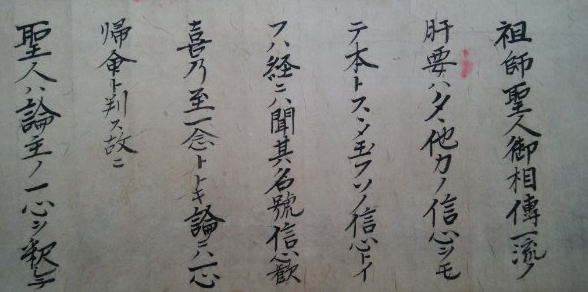 祖師聖人御相傳一流ノ
肝要ハタヽ他力ノ信心シモ
テ本トスヽメ玉フソノ信心トイ
フハ経ニハ聞其名號信心歓
喜乃至一念トトキ論ニハ一心
帰命ト判ス故ニ
聖人ハ論主ノ一心シ釈シテ